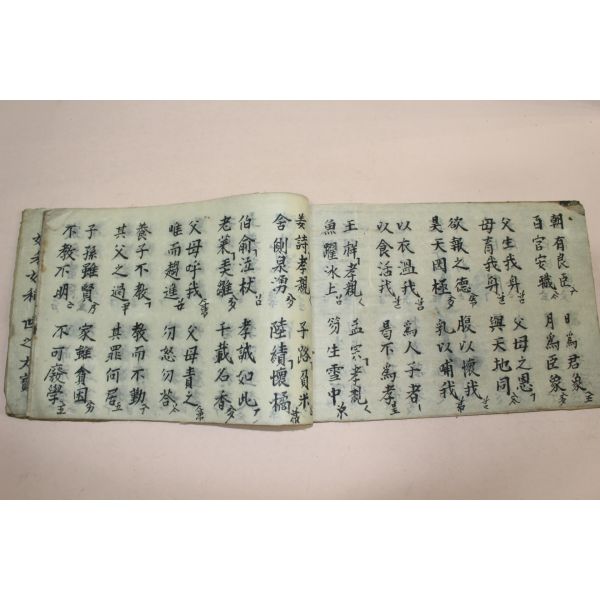 朝有良臣 日爲君象
百官安職 月爲臣象
父生我身 父母之恩
母育我身 與天地同
欲報之德 腹以懷我
昊天罔極 乳以哺我
以衣溫我 爲人子者
以食活我 曷不爲孝
王祥孝親 孟宗孝親
魚躍氷上 笋生雪中
姜詩孝親 子路負米
舍側泉湧 陸績懷橘
伯俞泣杖 孝誠如此
老萊弄雛 千載名香
父母呼我 父母責之
唯而趨進 勿怒勿答
養子不教 教而不勤
其父之過 其罪何居
子孫雖賢 家雖貧困
不教不明 不可廢學